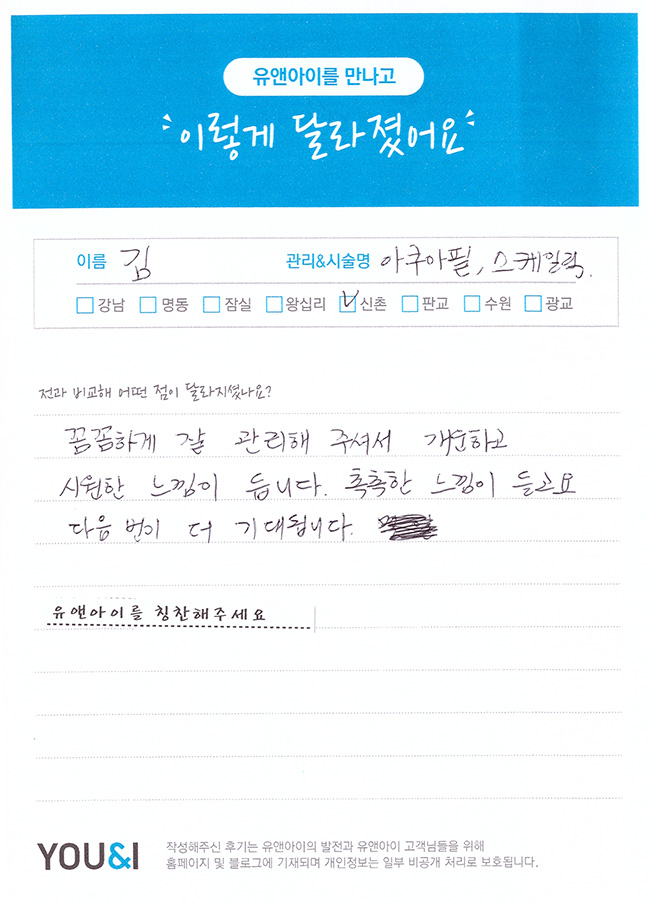 유앤아이를 만나고
이렇게 달라졌어요
이름 김 관리&시술명 아쿠아필, 스케일링.
강남 명동 잠실 왕십리 신촌 판교 수원 광교
전과 비교해 어떤 점이 달라지셨나요?
꼼꼼하게 잘 관리해 주셔서 개운하고
시원한 느낌이 듭니다. 촉촉한 느낌이 들고요
다음 번이 더 기대됩니다.
유앤아이를 칭찬해주세요
YOU&I 작성해주신 후기는 유앤아이의 발전과 유앤아이 고객님들을 위해
홈페이지 및 블로그에 기재되며 개인정보는 일부 비공개 처리로 보호됩니다.